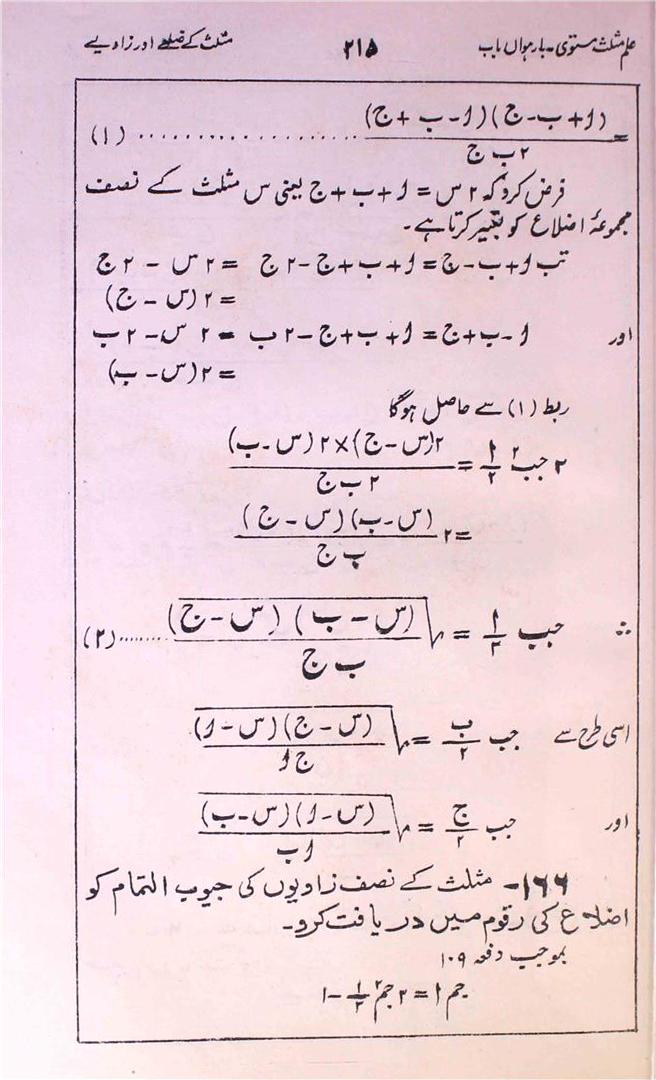 علم مثلث مستوی۔ بارہواں باب ۲۱۵ مثلث کے ضلعے اور زاویے
= (ا + ب - ج) (ا - ب + ج) / ۲ ب ج .................... (۱)
فرض کرو کہ ۲ س = ا + ب + ج یعنی س مثلث کے نصف
مجموعۂ اضلاع کو تعبیر کرتا ہے۔
تب ا + ب - ج = ا + ب + ج - ۲ ج = ۲ س - ۲ ج
= ۲ (س - ج)
اور ا - ب + ج = ا + ب + ج - ۲ ب = ۲ س - ۲ ب
= ۲ (س - ب)
ربط (۱) سے حاصل ہوگا
۲ جب۲ ا/۲ = ۲(س - ج) × ۲ (س - ب) / ۲ ب ج
= ۲ (س - ب) (س - ج) / ب ج
∴ جب ا/۲ = √(س - ب) (س - ج) / ب ج ......... (۲)
اسی طرح سے جب ب/۲ = √(س - ج) (س - ا) / ج ا
اور جب ج/۲ = √(س - ا) (س - ب) / ا ب
۱۶۶- مثلث کے نصف زاویوں کی جیوب التمام کو
اضلاع کی رقوم میں دریافت کرو۔
بموجب دفعہ ۱۰۹
جم ا = ۲ جم۲ ا/۲ - ۱